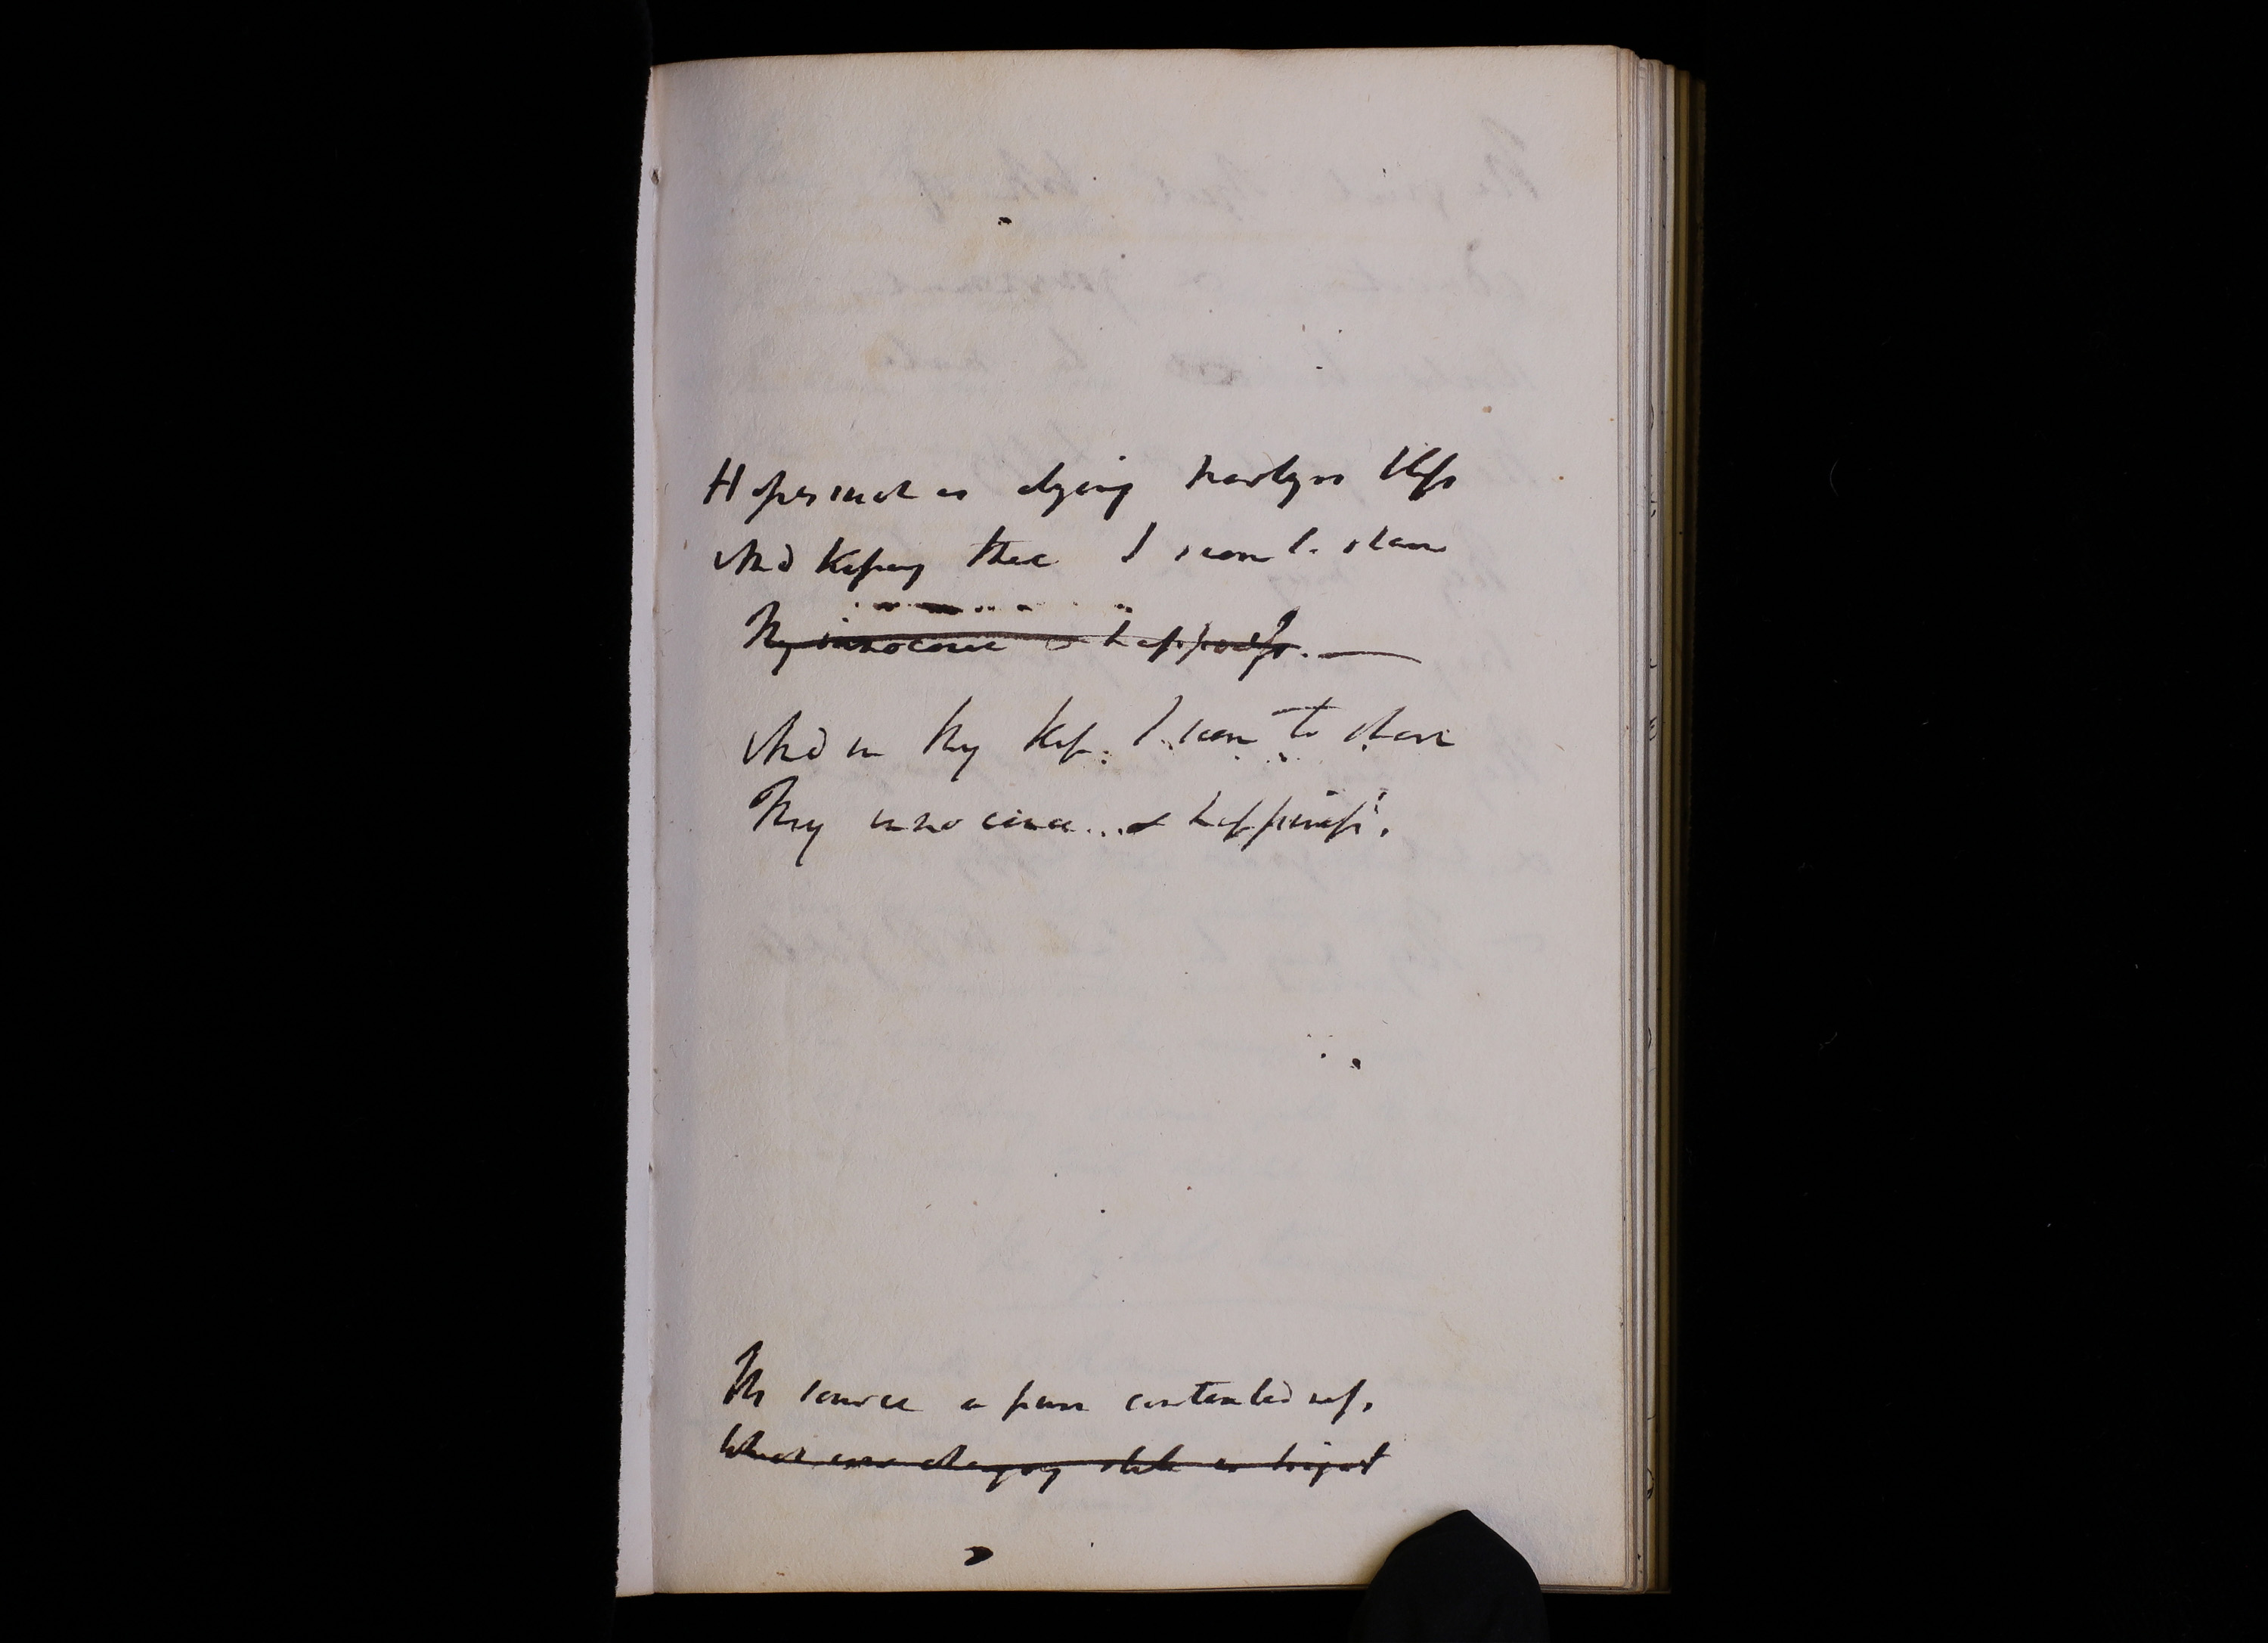 Hopes such as dying martyrs bless
And kissing thee I seem to share
Thy innocence & happiness.
And in thy kiss I seem to share
Thy innocence & happiness.
source a pure contented
What ever changing state